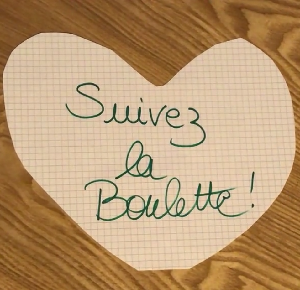 Suivez
la
Boulette !